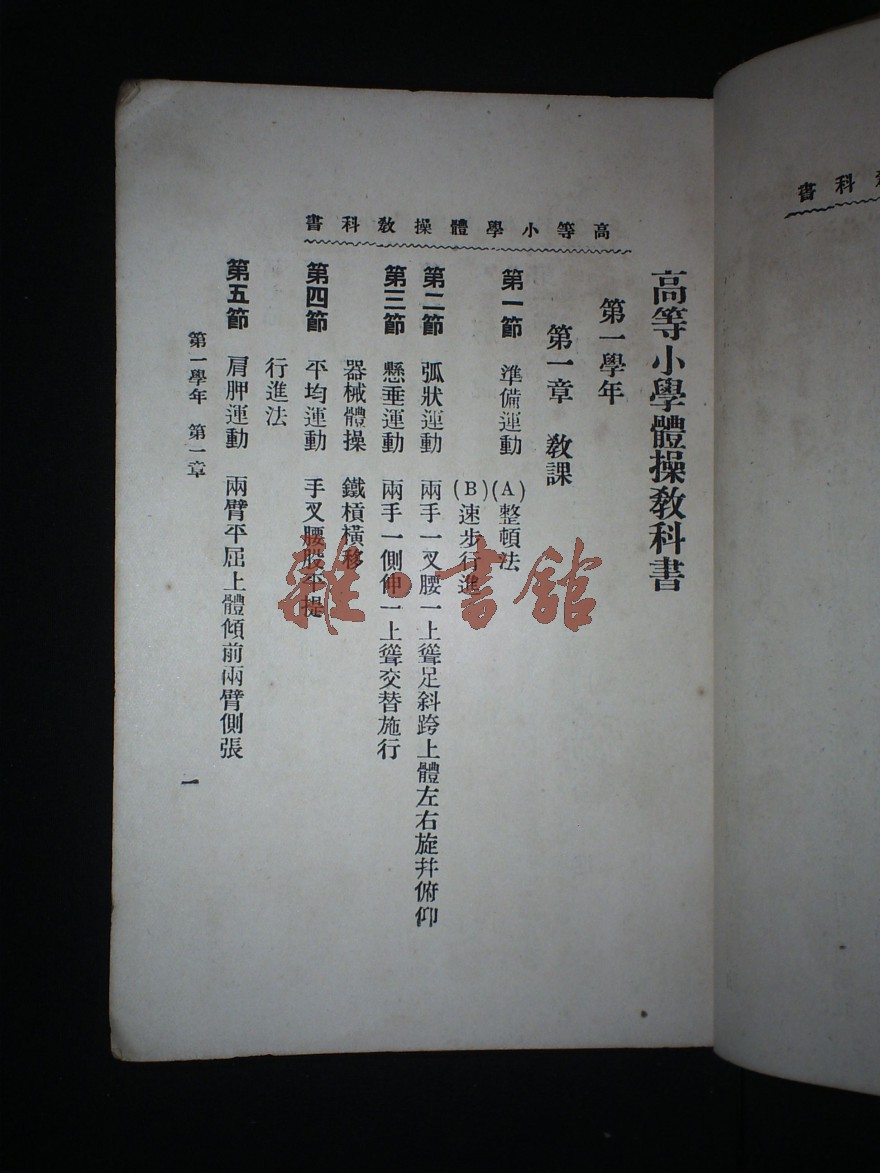 高等小學體操教科書
高等小學體操教科書
第一學年
第一章 教課
第一節 準備運動 (A)整頓法
(B)速步行進
第二節 弧狀運動 兩手一叉腰一上聳足斜跨上體左右旋幷俯仰
第三節 懸垂運動 兩手一側伸一上聳交替施行
器械體操 鐵槓橫移
第四節 平均運動 手叉腰股平提
行進法
第五節 肩胛運動 兩臂平屈上體傾前兩臂側張
第一學年 第一章
一
科書
雜·書館